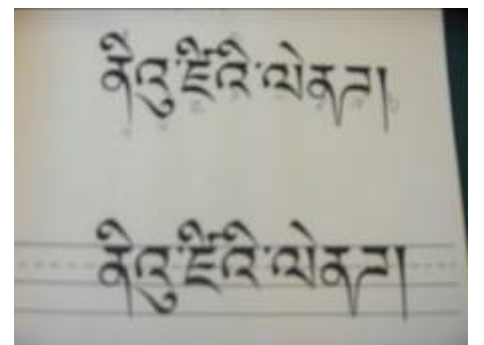 ནིའུ་ཛིའི་ལེནཌ།
ནིའུ་ཛིའི་ལེནཌ།